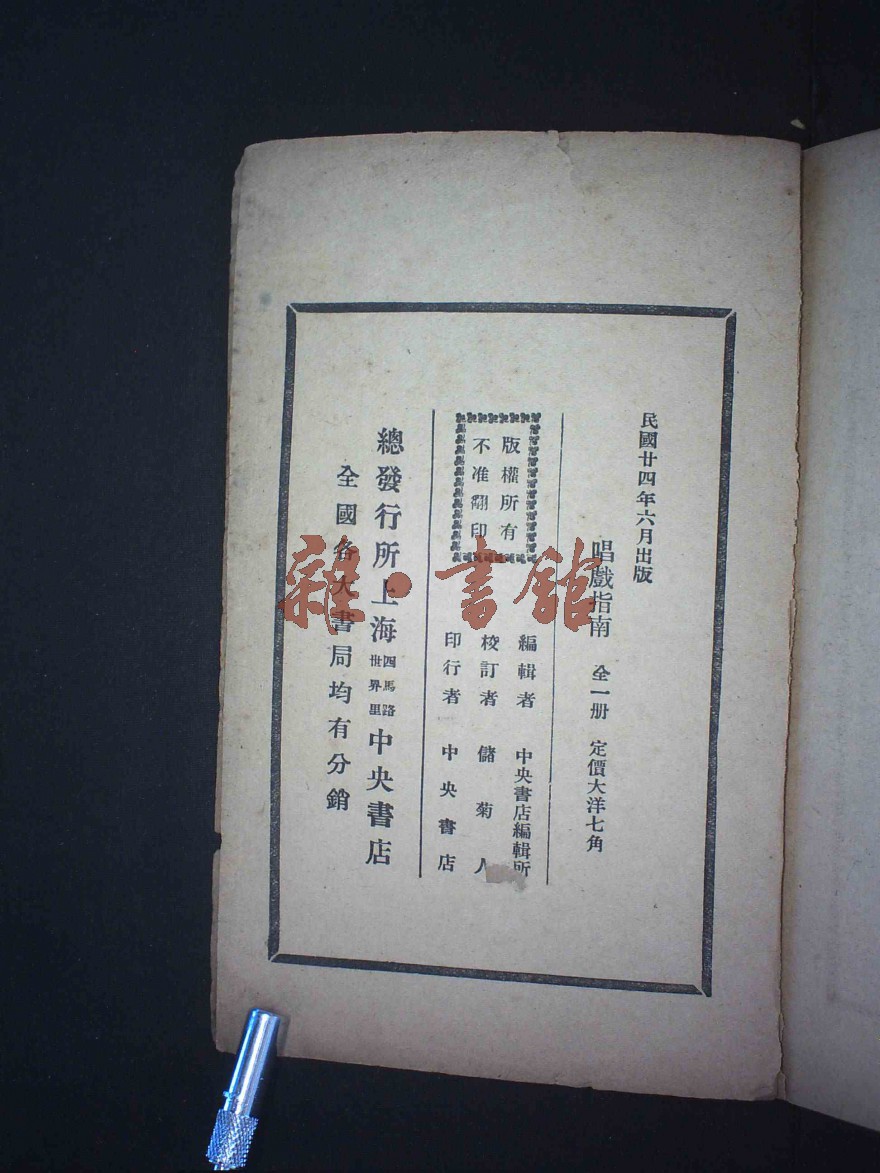 民國廿四年六月出版
唱戲指南 全一册 定價大洋七角
版權所有
不准翻印
編輯者 中央書店編輯所
校訂者 儲菊人
印行者 中央書店
總發行所上海四馬路世界里中央書店
全國各大書局均有分銷
雜·書館